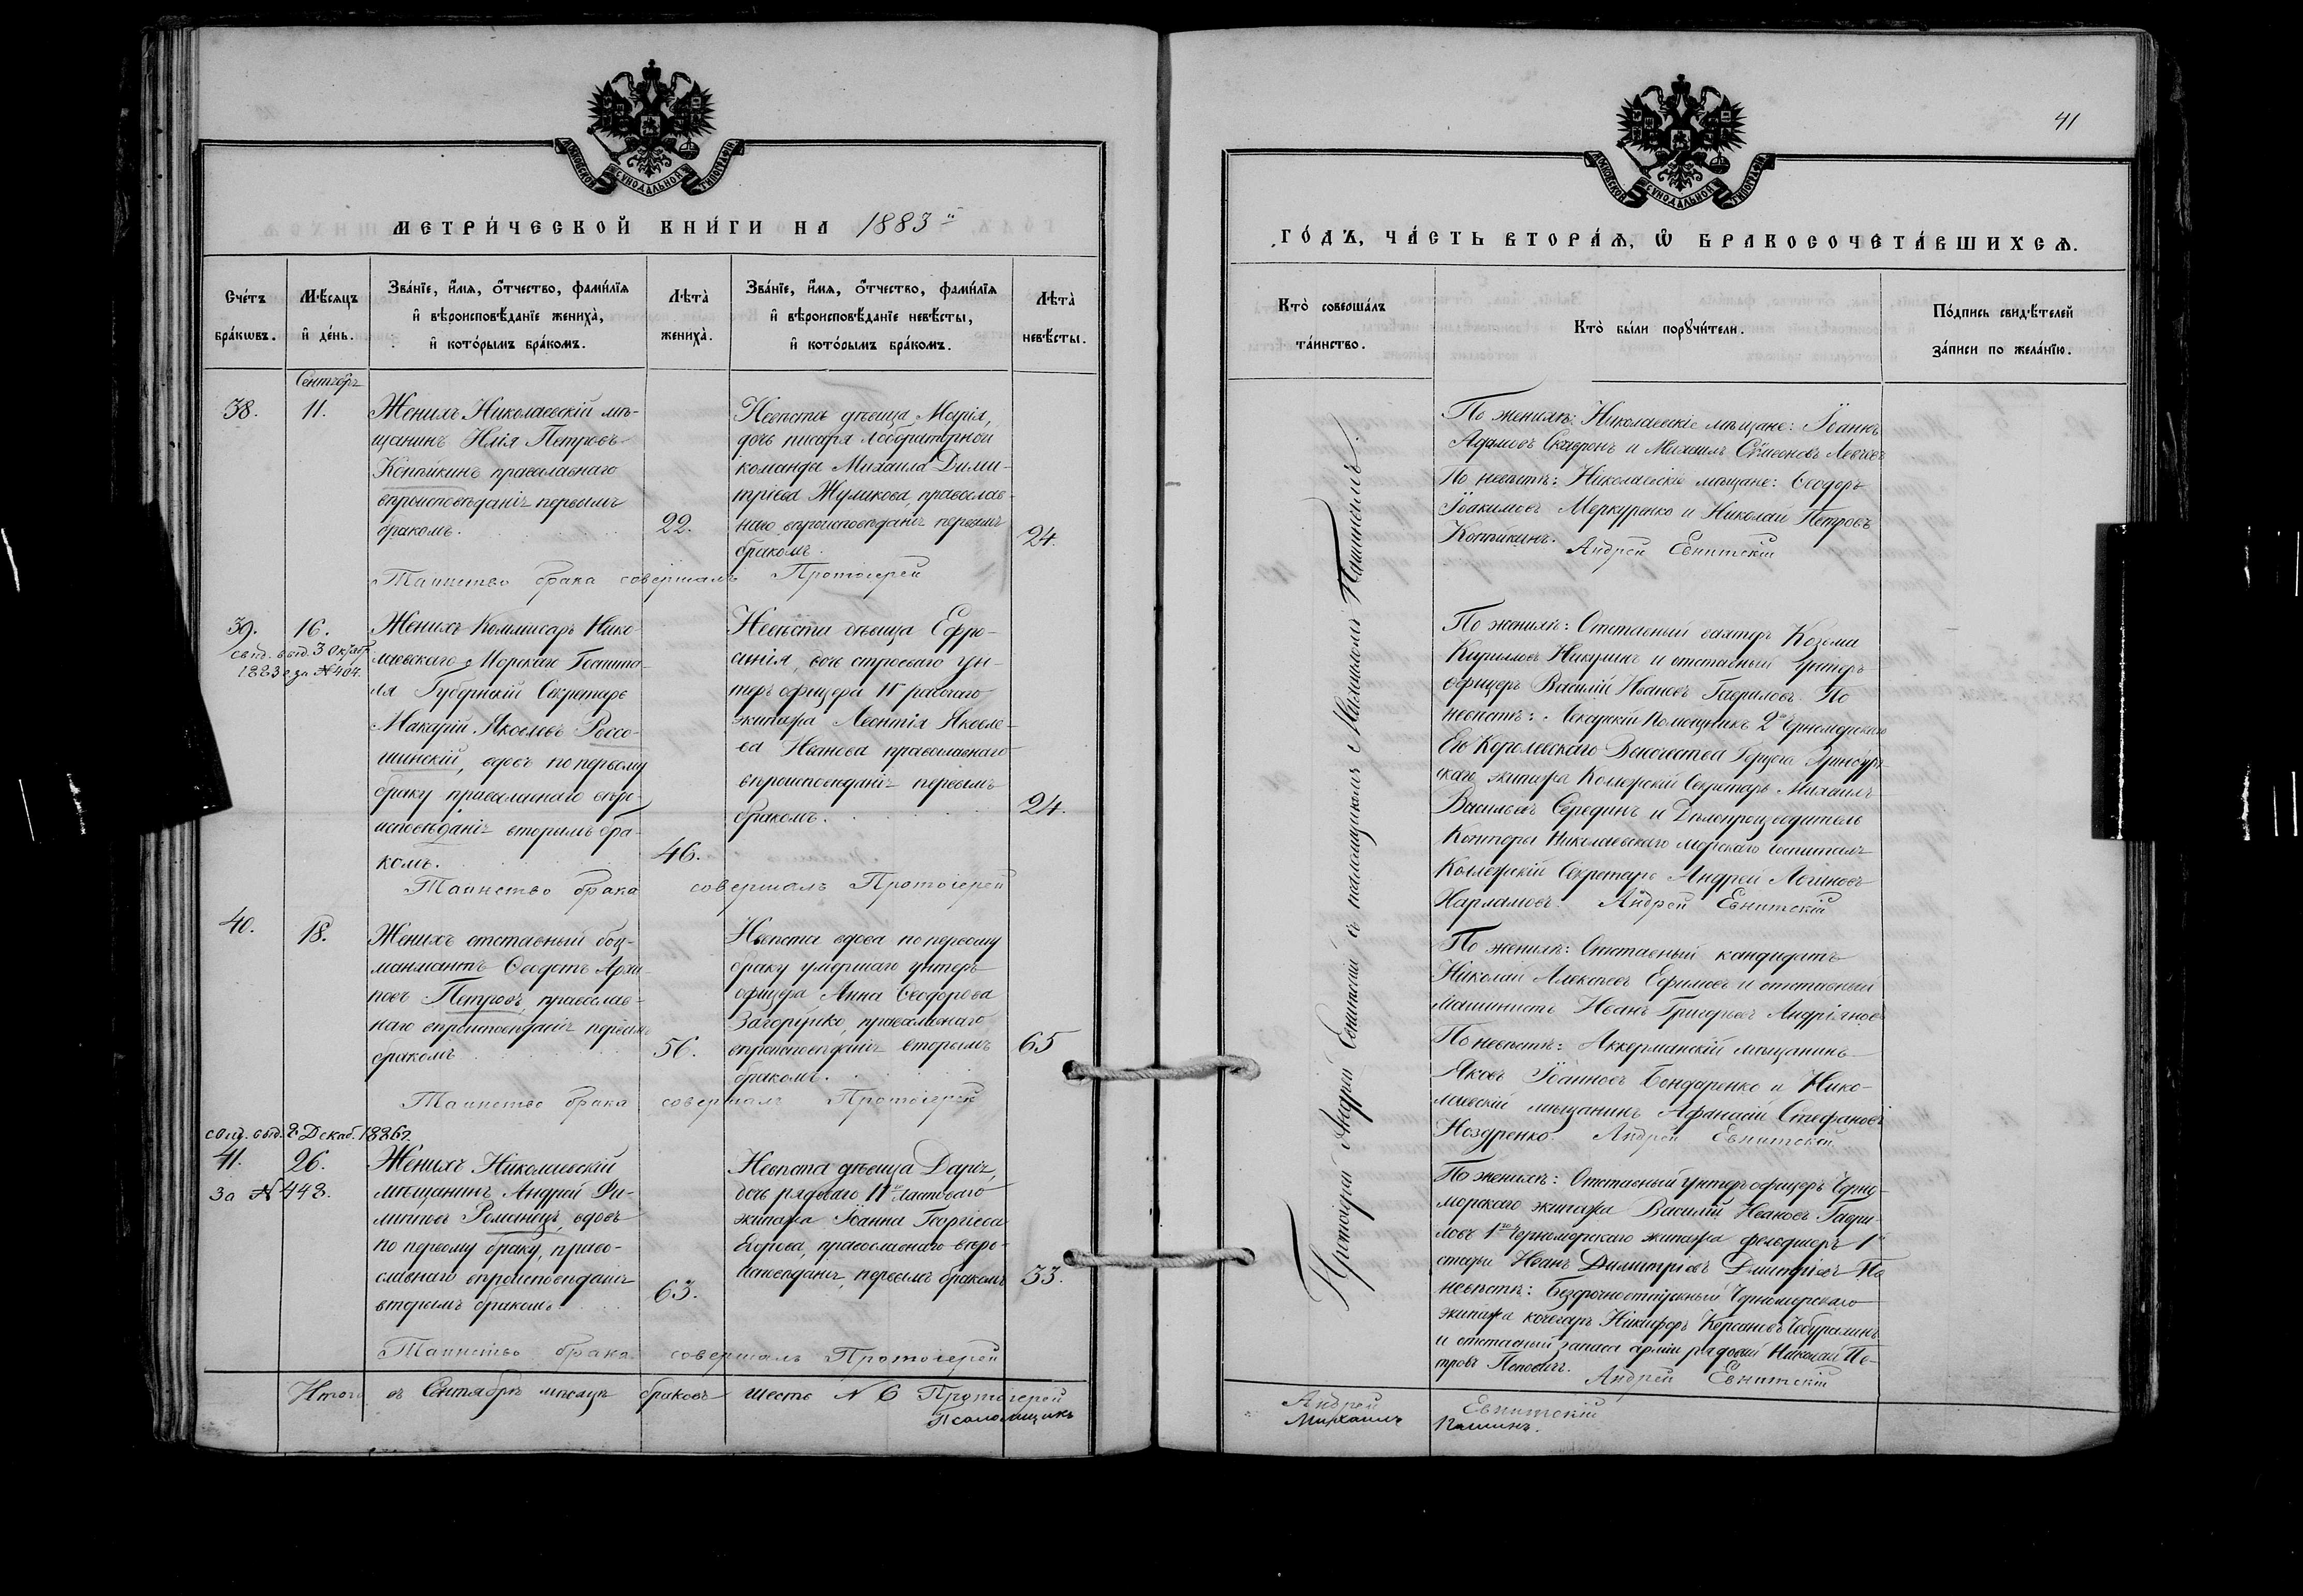 МОСКОВСКОЙ СѴНОДАЛЬНОЙ ТИПОГРАФІИ
МЕТРИ́ЧЕСКОЙ КНИ́ГИ НА 1883й
Сче́тъ бра́кωвъ.
Мѣ́сяцъ и҆ де́нь.
Зва́нїе, и҆́мѧ, ѻ҆́тчество, фами́лїѧ
и҆ вѣроисповѣ́данїе жениха̀,
и҆ кото́рымъ бра́комъ.
Лѣта̀ жениха̀.
Зва́нїе, и҆́мѧ, ѻ҆́тчество, фами́лїѧ
и҆ вѣроисповѣ́данїе невѣ́сты,
и҆ кото́рымъ бра́комъ.
Лѣта̀ невѣ́сты.
Сентябрь
38.
11.
Женихъ Николаевскій мѣ-
щанинъ Илія Петровъ
Копѣйкинъ православнаго
вѣроисповѣданія первымъ
бракомъ.
22.
Невѣста дѣвица Марія,
дочь писаря лабораторной
команды Михаила Дими-
тріева Жуликова, православ-
наго вѣроисповѣданія первымъ
бракомъ.
24.
Таинство брака совершалъ Протоіерей
39.
16.
свид. выд. 3 Октяб.
1883 г. за № 404.
Женихъ Коммисаръ Нико-
лаевскаго Морскаго Госпита-
ля Губернскій Секретарь
Макарій Яковлевъ Россо-
шинскій, вдовъ по первому
браку православнаго вѣро-
исповѣданія вторымъ бра-
комъ.
46.
Невѣста дѣвица Ефро-
синія, дочь строеваго ун-
теръ офицера 11 рабочаго
экипажа Леонтія Яковле-
ва Иванова православнаго
вѣроисповѣданія первымъ
бракомъ.
24.
Таинство брака совершалъ Протоіерей
40.
18.
Женихъ отставный боц-
манматъ Ѳеодотъ Архи-
повъ Петровъ, православ-
наго вѣроисповѣданія первымъ
бракомъ
56.
Невѣста вдова по первому
браку умершаго унтеръ
офицера Анна Ѳеодорова
Загорулко, православнаго
вѣроисповѣданія вторымъ
бракомъ.
65
Таинство брака совершалъ Протоіерей
свид. выд. 2 Декаб. 1886 г.
41.
26.
за № 448.
Женихъ Николаевскій
мѣщанинъ Андрей Фи-
липповъ Романецъ, вдовъ
по первому браку, право-
славнаго вѣроисповѣданія
вторымъ бракомъ.
63.
Невѣста дѣвица Дарія,
дочь рядоваго 11го ластоваго
экипажа Іоанна Георгіева
Егорова, православнаго вѣро-
исповѣданія, первымъ бракомъ
33.
Таинство брака совершалъ Протоіерей
Итого въ Сентябрѣ мѣсяцѣ браковъ шесть № 6 Протоіерей
Псаломщикъ
41
МОСКОВСКОЙ СѴНОДАЛЬНОЙ ТИПОГРАФІИ
ГО́ДЪ, ЧА́СТЬ ВТОРА́Ѧ, Ѽ БРАКОСОЧЕТА́ВШИХСѦ.
Кто̀ соверша́лъ
та́инство.
Кто̀ бы́ли порꙋчи́тели.
По́дпись свидѣ́телей
за́писи по жела́нїю.
Протоіерей Андрей Евнитскій съ псаломщикомъ Михаиломъ Пашинымъ.
По женихѣ: Николаевскіе мѣщане: Іоаннъ
Адамовъ Скавронъ и Михаилъ Сѵмеоновъ
По невѣстѣ: Николаевскіе мѣщане: Ѳеодоръ
Іоакимовъ Меркуренко и Николай Петровъ
Копѣйкинъ.
Андрей Евнитскій
По женихѣ: Отставный вахтеръ Козьма
Кирилловъ Никулинъ и отставный унтеръ
офицеръ Василій Ивановъ Гавриловъ. По
невѣстѣ: Лекарскій Помощникъ 2го Черноморскаго
Его Королевскаго Высочества Герцога Эдинбург-
скаго экипажа Коллежскій Секретарь Михаилъ
Васильевъ Серединъ и Дѣлопроизводитель
Конторы Николаевскаго морскаго госпиталя
Коллежскій Секретарь Андрей Логиновъ
Харламовъ.
Андрей Евнитскій
По женихѣ: Отставный кандидатъ
Николай Алексѣевъ Ефимовъ и отставный
машинистъ Иванъ Григорьевъ Андріяновъ
По невѣстѣ: Аккерманскій мѣщанинъ
Яковъ Іоанновъ Бондаренко и Нико-
лаевскій мѣщанинъ Аѳанасій Стефановъ
Ноздренко.
Андрей Евнитскій
По женихѣ: Отставный унтеръ офицеръ Черно-
морскаго экипажа Василій Ивановъ Гаври-
ловъ 1го Черноморскаго экипажа фельдшеръ 1й
статьи Иванъ Димитріевъ Дмитріевъ По
невѣстѣ: Безсрочноотпускный Черноморскаго
экипажа кочегаръ Никифоръ
и отставный запаса арміи рядовый Николай Пе-
тровъ Поповичъ.
Андрей Евнитскій
Андрей Евнитскій
Михаилъ Пашинъ.